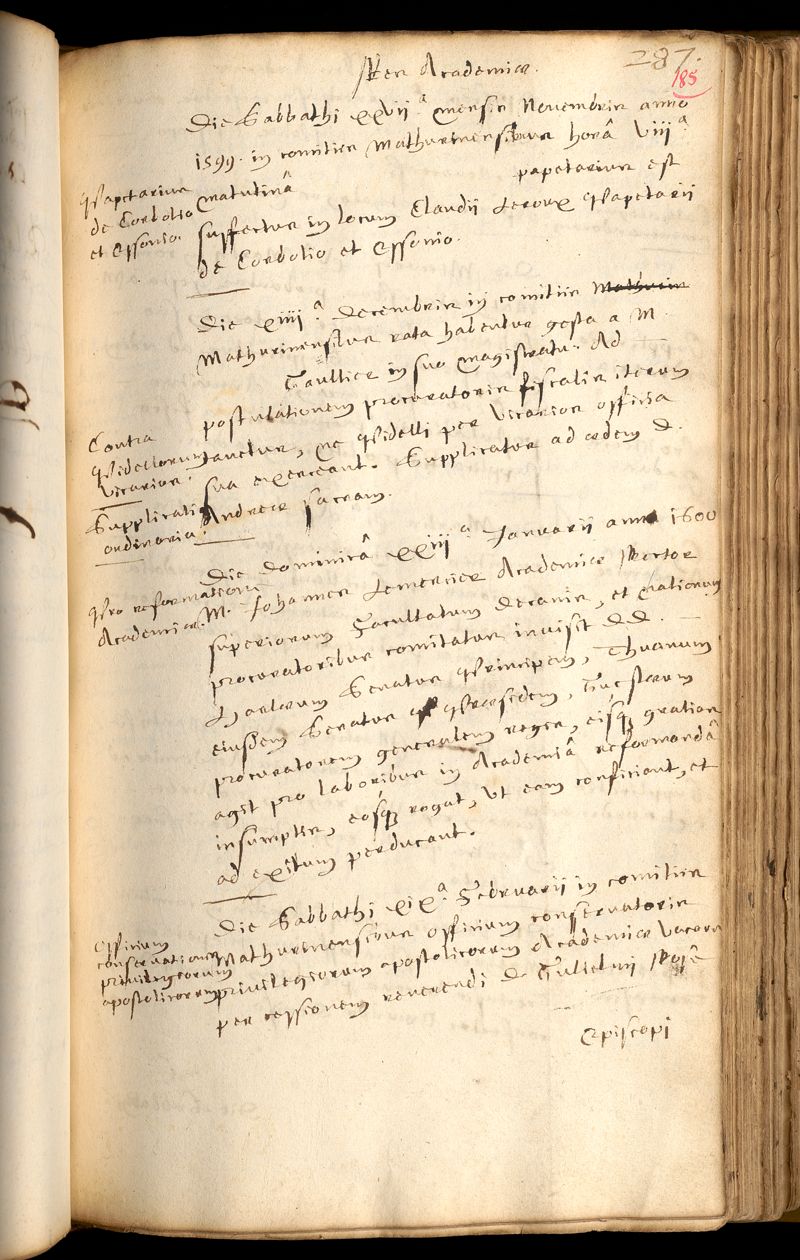 287.
185
Res Academiæ.
Die Sabbathi xxvii.ª mensis Novembris anno
1599. in comitiis Mathurinensibus horâ viiiª
matutinâ papetarius est
suffectus in locum Claudii Leroux Papetarii
de Corbolio et Essonio.
Papetarius
de Corbolio
et Essonio.
Die xiiii.ª Decembris in comitiis Mathurin
Mathurinensibus rata habentur gesta a M.
Gaultier in suo magistratu. Ad
postulationem procuratoris fiscalis iterum
sancitur, ne Bidelli per vicarios officia
sua exerceant. Supplicatur ad ædem D.
Andreæ sacram.
Contra
Bidellorum
vicarios.
Supplicatio
ordinaria.
Die Dominicâ xxiiiª Januarii anno 1600
M. Johannes Lemercier Academiæ Rector
superiorum Facultatum Decanis, et Nationum
procuratoribus comitatus invisit DD.
Harlæum Senatus Principem, Thuanum
eiusdem Senatus Præsidem, Guesleum
procuratorem generalem regis, eisq; gratias
agit pro laboribus in Academiâ reformandâ
insumptis, eosq; rogat, ut eam conficiant, et
ad exitum perducant.
Pro reformatione
Academiæ.
Die Sabbathi xixª. Februarii in comitiis
Mathurinensibus officium conservatoris
privilegiorum apostolicorum Academiæ vacans
per cessionem reverendi D. Gulielmi Rose
Episcopi
Officium
conservationis
privilegiorum
apostolicorum